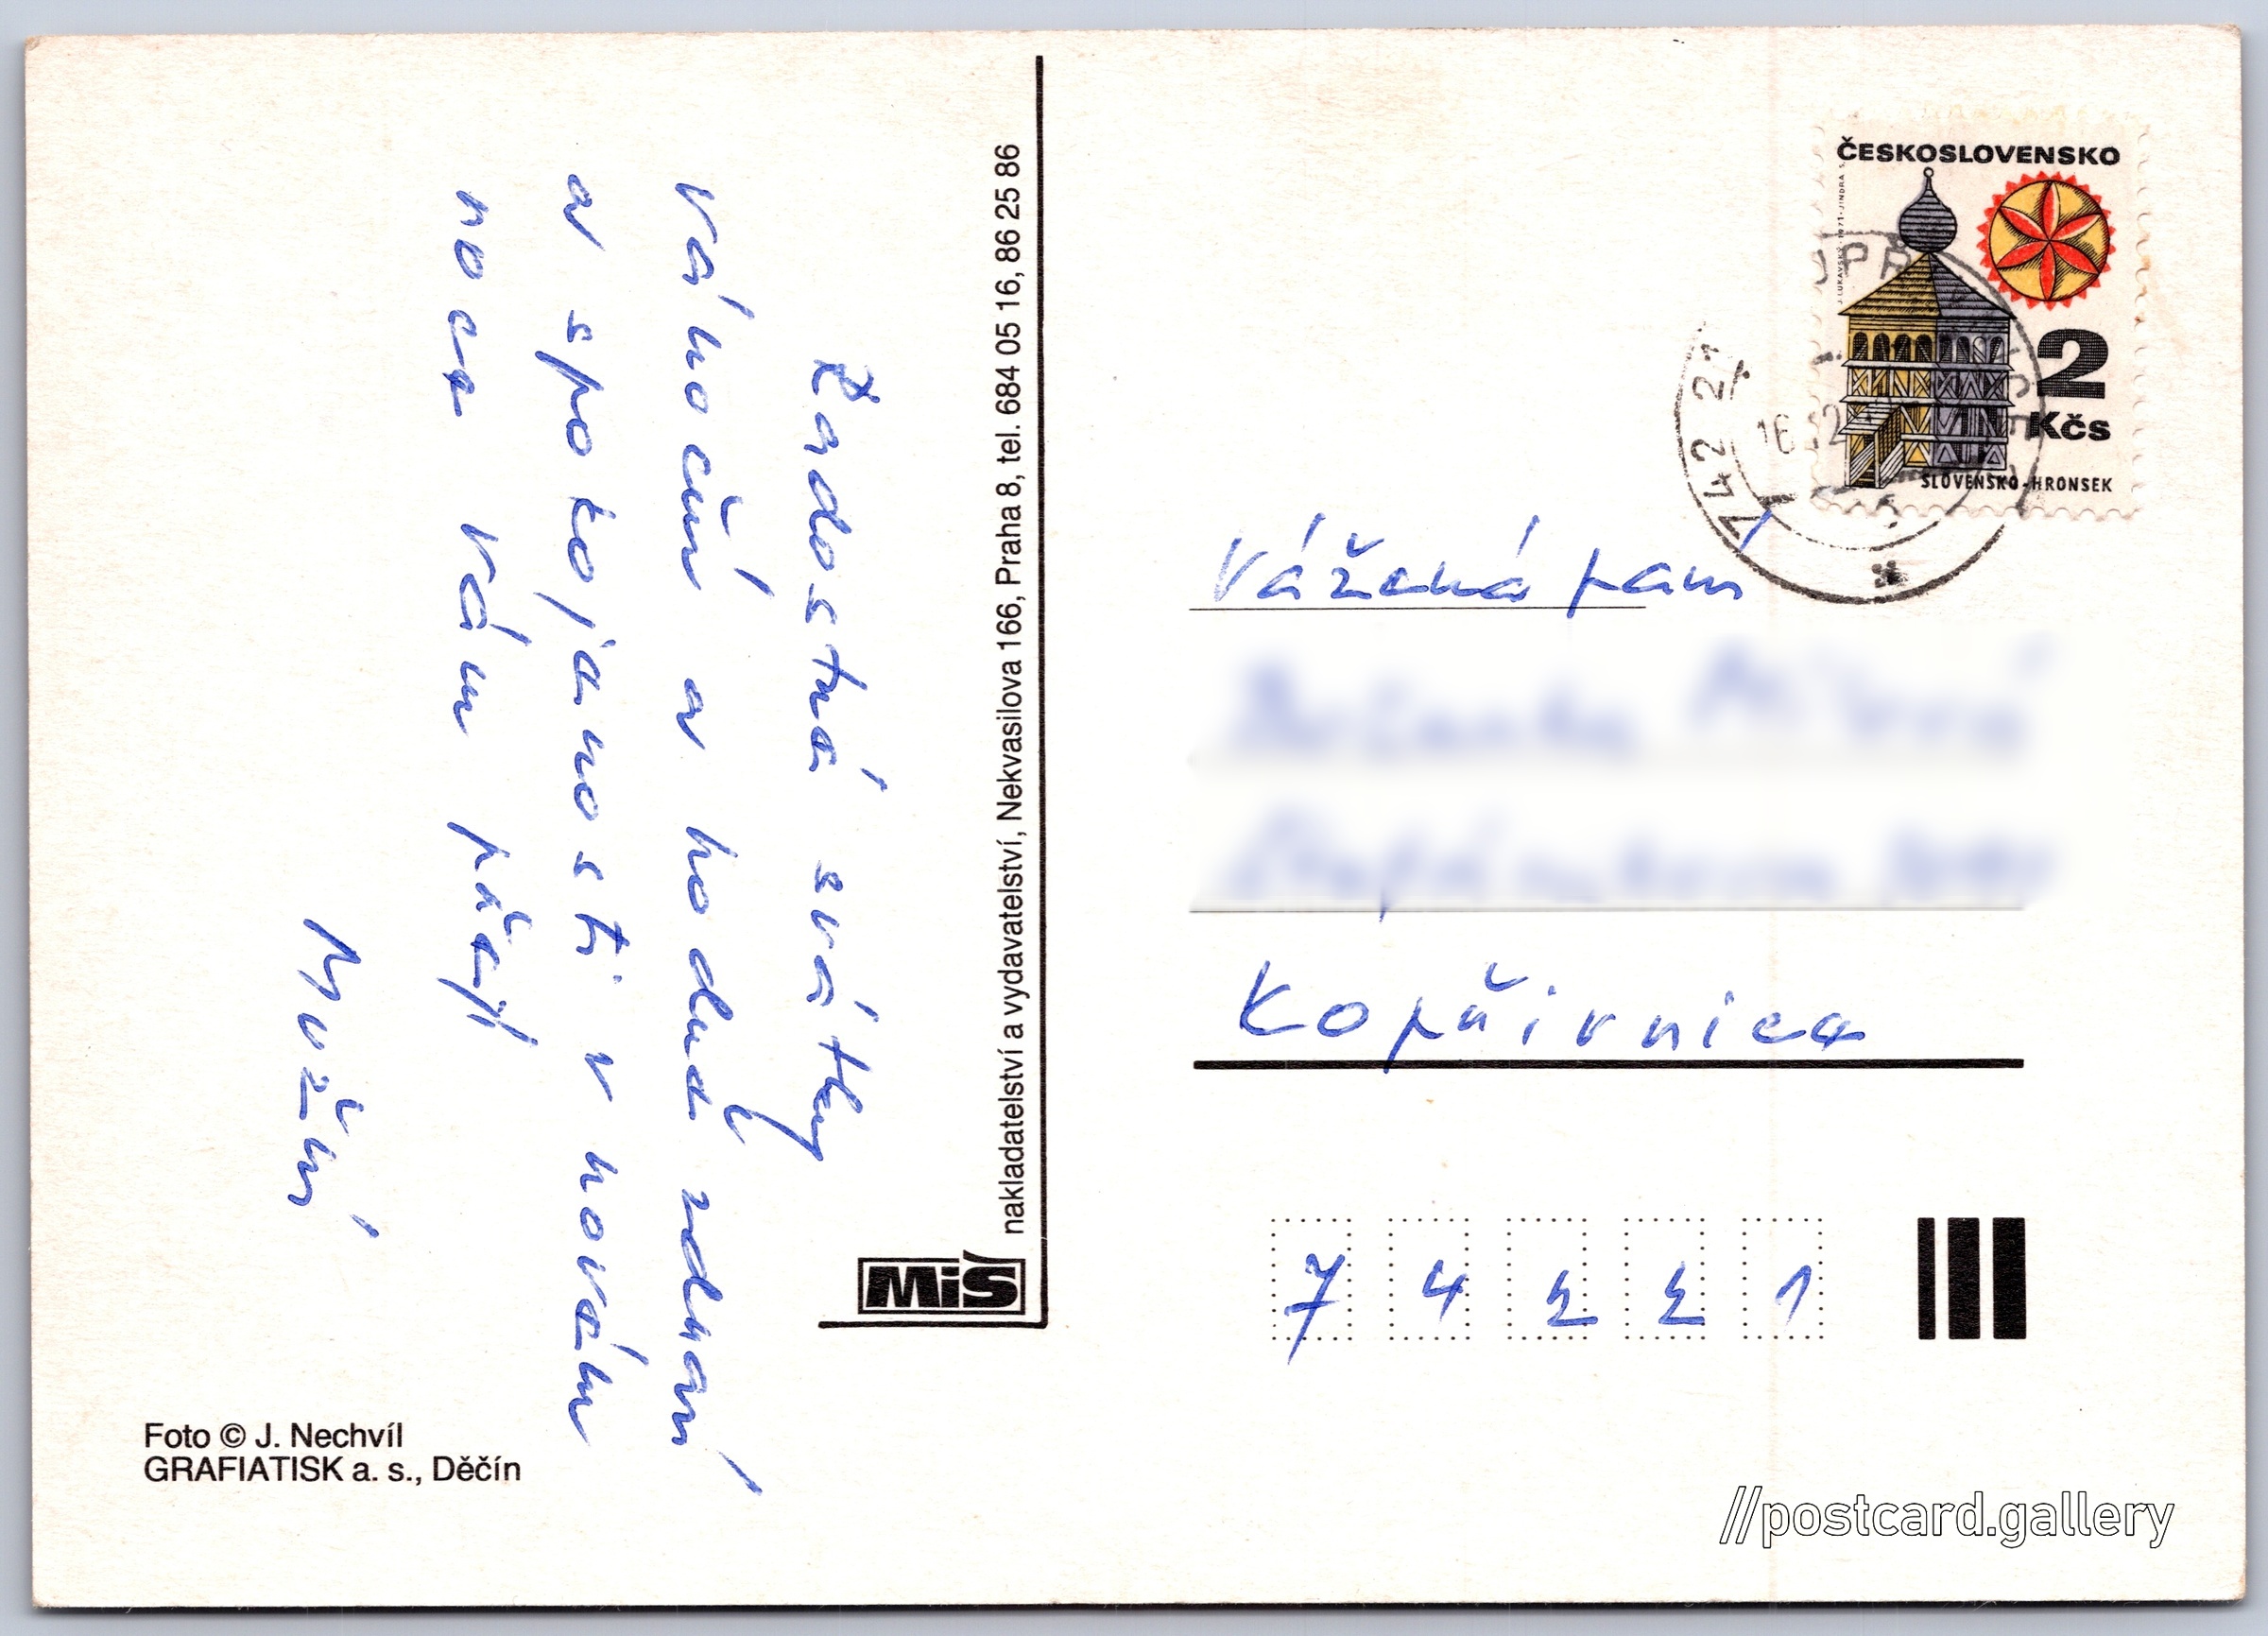 Radostné svátky
vánoční a hodně zdraví
a spokojenosti v novém
roce Vám přejí
Mužní
nakladatelství a vydavatelství, Nekvasilova 166, Praha 8, tel. 684 05 16, 86 25 86
MiŠ
Foto © J. Nechvíl
GRAFIATISK a. s., Děčín
ČESKOSLOVENSKO
2
Kčs
SLOVENSKO-HRONSEK
742 21
16
Vážená paní
Kopřivnice
7 4 2 2 1
//postcard.gallery